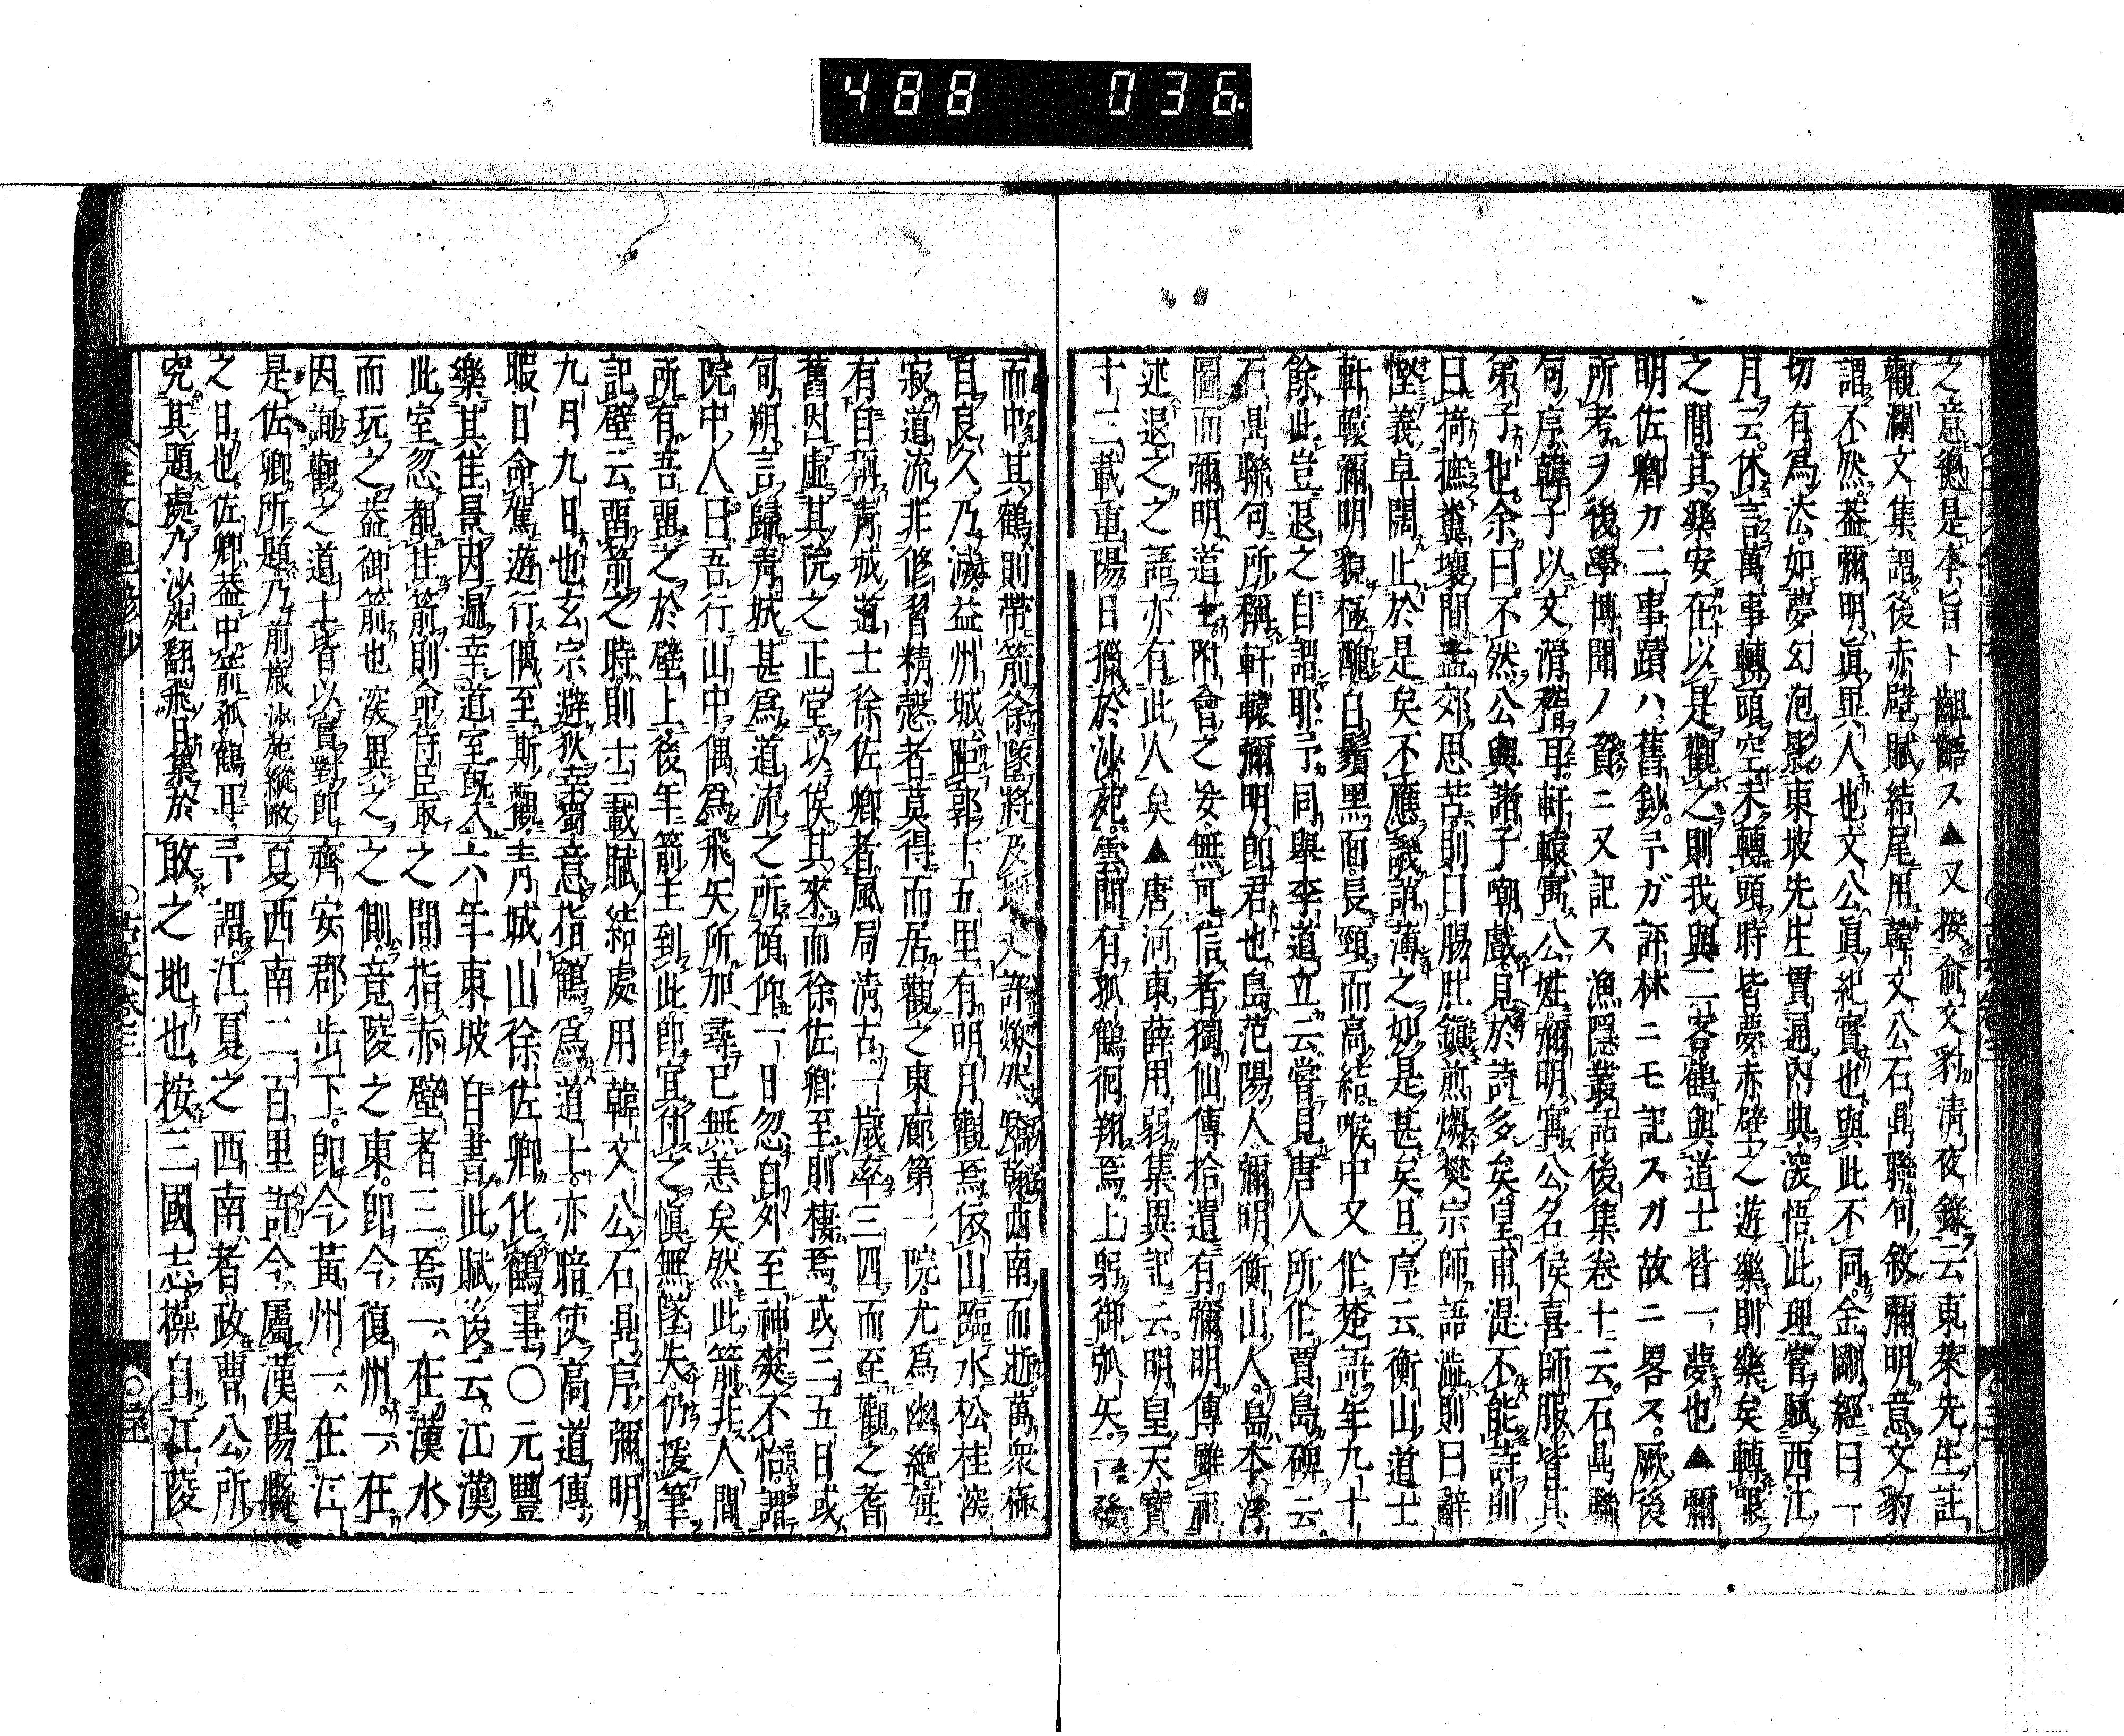 488 036.
之意趣是本旨ト齟齬ス▲又按俞文豹清夜錄云東萊先生註
觀瀾文集謂後赤壁賦結尾用韓文公石鼎聯句敘彌明意文豹
謂不然葢彌明眞異人也文公眞紀實也與此不同金剛經曰一
切有爲法如夢幻泡影東坡先生貫通內典深悟此理嘗賦西江
月云休言萬事轉頭空未轉頭時皆夢赤壁之遊樂則樂矣轉眼
之間其樂安在以是觀之則我與二客鶴與道士皆一夢也▲彌
明佐卿カ二事蹟ハ舊鈔予ガ評林ニモ記スガ故ニ畧ス厥後
所考ヲ後學博聞ノ資ニ又記ス漁隱叢話後集卷十云石鼎聯
句序韓子以文滑稽耳軒轅寓公姓彌明寓公名侯喜師服皆其
弟子也余曰不然公與諸子嘲戲見於詩多矣皇甫湜不能詩則
曰掎摭糞壤間孟郊思苦則曰腸肚鎭煎熬樊宗師語澁則曰辭
慳義卓闊止於是矣不應譏誚薄之如是甚矣且序云衡山道士
軒轅彌明貌極醜白鬚黑面長頸而高結喉中又作楚語年九十
餘此豈退之自謂耶予同舉李道立云嘗見唐人所作賈島碑云
石鼎聯句所稱軒轅彌明卽君也島范陽人彌明衡山人島本浮
圖而彌明道士附會之妄無可信者獨仙傳拾遺有彌明傳雖祖
述退之之語亦有此人矣▲唐河東薛用弱集異記云明皇天寶
十三載重陽日獵於沙苑雲間有孤鶴徊翔焉上躬御弧矢一發
而中其鶴則帶箭徐墜將及地丈許欻然矯翰西南而逝萬衆極
目良久乃滅益州城距郭十五里有明月觀焉依山臨水松桂深
寂道流非修習精愨者莫得而居觀之東廊第一院尤爲幽絕每
有自稱靑城道士徐佐卿者風局淸古一歲率三四而至觀之耆
舊因虛其院之正堂以俟其來而徐佐卿至則棲焉或三五日或
旬朔言歸靑城甚爲道流之所傾仰一日忽自外至神爽不怡謂
院中人曰吾行山中偶爲飛矢所加尋已無恙矣然此箭非人間
所有吾留之於壁上後年箭主到此卽宜付之愼無墜失仍援筆
記壁云留箭之時則十三載
九月九日也玄宗避狄幸蜀
暇日命駕遊行偶至斯觀
樂其佳景因遍幸道室旣入
此室忽覩挂箭則命侍臣取
而玩之葢御箭也深異之
因詢觀之道士皆以實對卽
是佐卿所題乃前歲沙苑縱畋
之日也佐卿葢中箭孤鶴耳
究其題處乃沙苑翻飛日集於
賦結處用韓文公石鼎序彌明
意指鶴爲道士亦暗使高道傳
靑城山徐佐卿化鶴事○元豐
六年東坡自書此賦後云江漢
之間指赤壁者三焉一在漢水
之側竟陵之東卽今復州一在
齊安郡步下卽今黃州一在江
夏西南二百里許今屬漢陽縣
予謂江夏之西南者政曹公所
敗之地也按三國志操自江陵
古文卷三